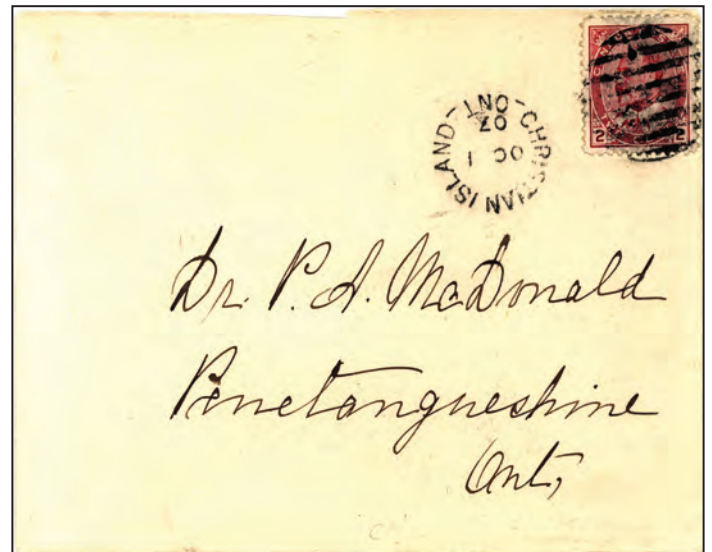 CHRISTIAN ISLAND-ONT-
OC 1
07
2 2
Dr. P. A. McDonald
Penetangueshine
Ont,